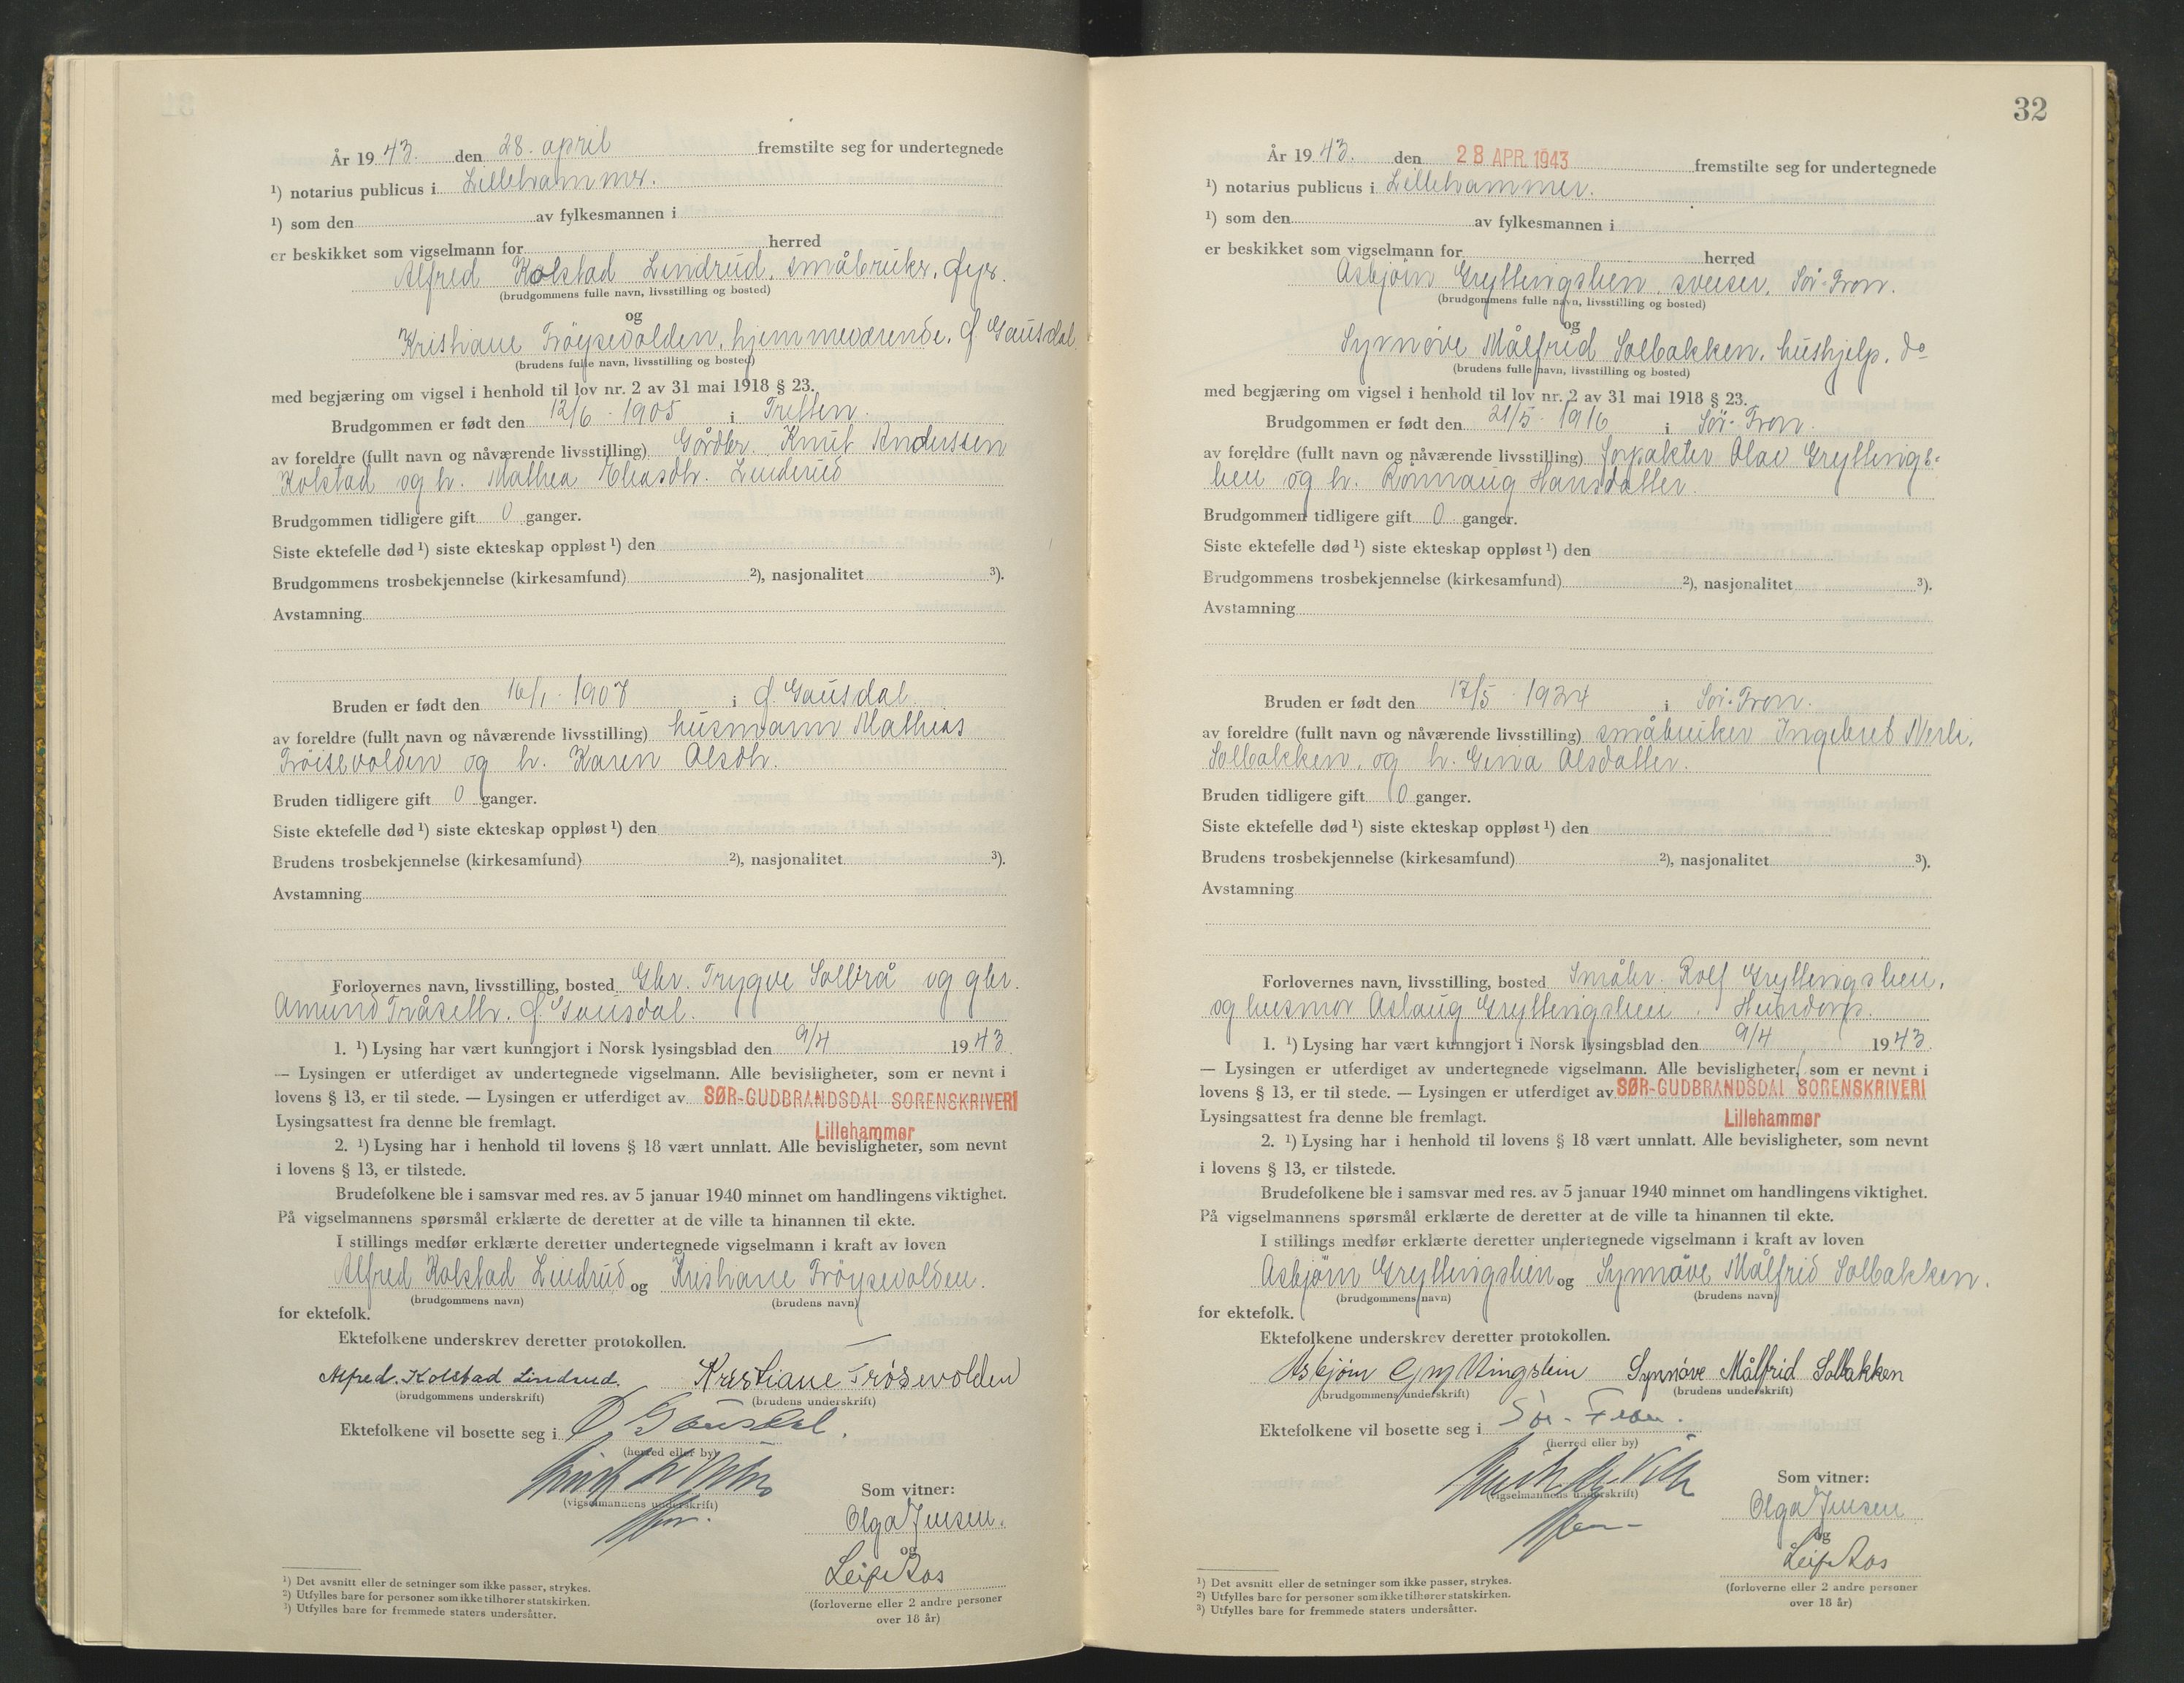 År 1943. den 28. april fremstilte seg for undertegnede
¹) notarius publicus i Lillehammer.
¹) som den av fylkesmannen i
er beskikket som vigselmann for herred
Alfred Kolstad Lindrud, småbruker, Øyer.
(brudgommens fulle navn, livsstilling og bosted)
og
Kristiane Tröysevolden, hjemmeværende, Ø. Gausdal
(brudens fulle navn, livsstilling og bosted)
med begjæring om vigsel i henhold til lov nr. 2 av 31 mai 1918 § 23.
Brudgommen er født den 12/6 - 1905 i Tretten.
av foreldre (fullt navn og nåværende livsstilling) Gårdbr. Knut Andersen
Kolstad og h. Mathea Eliasdtr. Linderud
Brudgommen tidligere gift 0 ganger.
Siste ektefelle død ¹) siste ekteskap oppløst ¹) den
Brudgommens trosbekjennelse (kirkesamfund) ²), nasjonalitet ³).
Avstamning
Bruden er født den 16/1 - 1907 i Ø. Gausdal.
av foreldre (fullt navn og nåværende livsstilling) husmann Mathias
Tröisevolden og h. Karen Olsdtr.
Bruden tidligere gift 0 ganger.
Siste ektefelle død ¹) siste ekteskap oppløst ¹) den
Brudens trosbekjennelse (kirkesamfund) ²), nasjonalitet ³).
Avstamning
Forlovernes navn, livsstilling, bosted Gbr. Trygve Solbrå og gbr.
Amund Tråseth. Ø. Gausdal.
1. ¹) Lysing har vært kunngjort i Norsk lysingsblad den 9/4 1943
— Lysingen er utferdiget av undertegnede vigselmann. Alle bevisligheter, som er nevnt i
lovens § 13, er til stede. — Lysingen er utferdiget av SØR-GUDBRANDSDAL SORENSKRIVERI
Lysingsattest fra denne ble fremlagt.
Lillehammer
2. ¹) Lysing har i henhold til lovens § 18 vært unnlatt. Alle bevisligheter, som nevnt
i lovens § 13, er tilstede.
Brudefolkene ble i samsvar med res. av 5 januar 1940 minnet om handlingens viktighet.
På vigselmannens spørsmål erklærte de deretter at de ville ta hinannen til ekte.
I stillings medfør erklærte deretter undertegnede vigselmann i kraft av loven
Alfred Kolstad Lindrud og Kristiane Tröysevolden.
(brudgommens navn) (brudens navn)
for ektefolk.
Ektefolkene underskrev deretter protokollen.
Alfred. Kolstad Lindrud. Kristiane Trøsevolden
(brudgommens underskrift) (brudens underskrift)
Ektefolkene vil bosette seg i Ø Gausdal.
(herred eller by)
(vigselmannens underskrift)
Som vitner:
Olga Jensen.
og
Leif Aas
(forloverne eller 2 andre personer
over 18 år)
¹) Det avsnitt eller de setninger som ikke passer, strykes.
²) Utfylles bare for personer som ikke tilhører statskirken.
³) Utfylles bare for fremmede staters undersåtter.
32
År 1943. den 28 APR. 1943 fremstilte seg for undertegnede
¹) notarius publicus i Lillehammer.
¹) som den av fylkesmannen i
er beskikket som vigselmann for herred
Asbjörn Gryttingslien, sveiser, Sör-Fron.
(brudgommens fulle navn, livsstilling og bosted)
og
Synnöve Målfrid Solbakken, hushjelp, do
(brudens fulle navn, livsstilling og bosted)
med begjæring om vigsel i henhold til lov nr. 2 av 31 mai 1918 § 23.
Brudgommen er født den 21/5 - 1916 i Sör-Fron.
av foreldre (fullt navn og nåværende livsstilling) forpakter Olav Gryttings-
lien og h. Rönnaug Hansdatter.
Brudgommen tidligere gift 0 ganger.
Siste ektefelle død ¹) siste ekteskap oppløst ¹) den
Brudgommens trosbekjennelse (kirkesamfund) ²), nasjonalitet ³).
Avstamning
Bruden er født den 17/5 - 1924 i Sör-Fron.
av foreldre (fullt navn og nåværende livsstilling) småbruker Ingebret
Solbakken, og h. Gina Olsdatter.
Bruden tidligere gift 0 ganger.
Siste ektefelle død ¹) siste ekteskap oppløst ¹) den
Brudens trosbekjennelse (kirkesamfund) ²), nasjonalitet ³).
Avstamning
Forlovernes navn, livsstilling, bosted Småbr. Rolf Gryttingslien,
og husmor Aslaug Gryttingslien, Hundorp.
1. ¹) Lysing har vært kunngjort i Norsk lysingsblad den 9/4 1943.
— Lysingen er utferdiget av undertegnede vigselmann. Alle bevisligheter, som er nevnt i
lovens § 13, er til stede. — Lysingen er utferdiget av SØR-GUDBRANDSDAL SORENSKRIVERI
Lysingsattest fra denne ble fremlagt. Lillehammer
2. ¹) Lysing har i henhold til lovens § 18 vært unnlatt. Alle bevisligheter, som nevnt
i lovens § 13, er tilstede.
Brudefolkene ble i samsvar med res. av 5 januar 1940 minnet om handlingens viktighet.
På vigselmannens spørsmål erklærte de deretter at de ville ta hinannen til ekte.
I stillings medfør erklærte deretter undertegnede vigselmann i kraft av loven
Asbjörn Gryttingslien og Synnöve Målfrid Solbakken.
(brudgommens navn) (brudens navn)
for ektefolk.
Ektefolkene underskrev deretter protokollen.
Asbjörn Gryttingslien Synnöve Målfrid Solbakken
(brudgommens underskrift) (brudens underskrift)
Ektefolkene vil bosette seg i Sör-Fron.
(herred eller by)
(vigselmannens underskrift)
Som vitner:
Olga Jensen
og
Leif Aas
(forloverne eller 2 andre personer
over 18 år)
¹) Det avsnitt eller de setninger som ikke passer, strykes.
²) Utfylles bare for personer som ikke tilhører statskirken.
³) Utfylles bare for fremmede staters undersåtter.